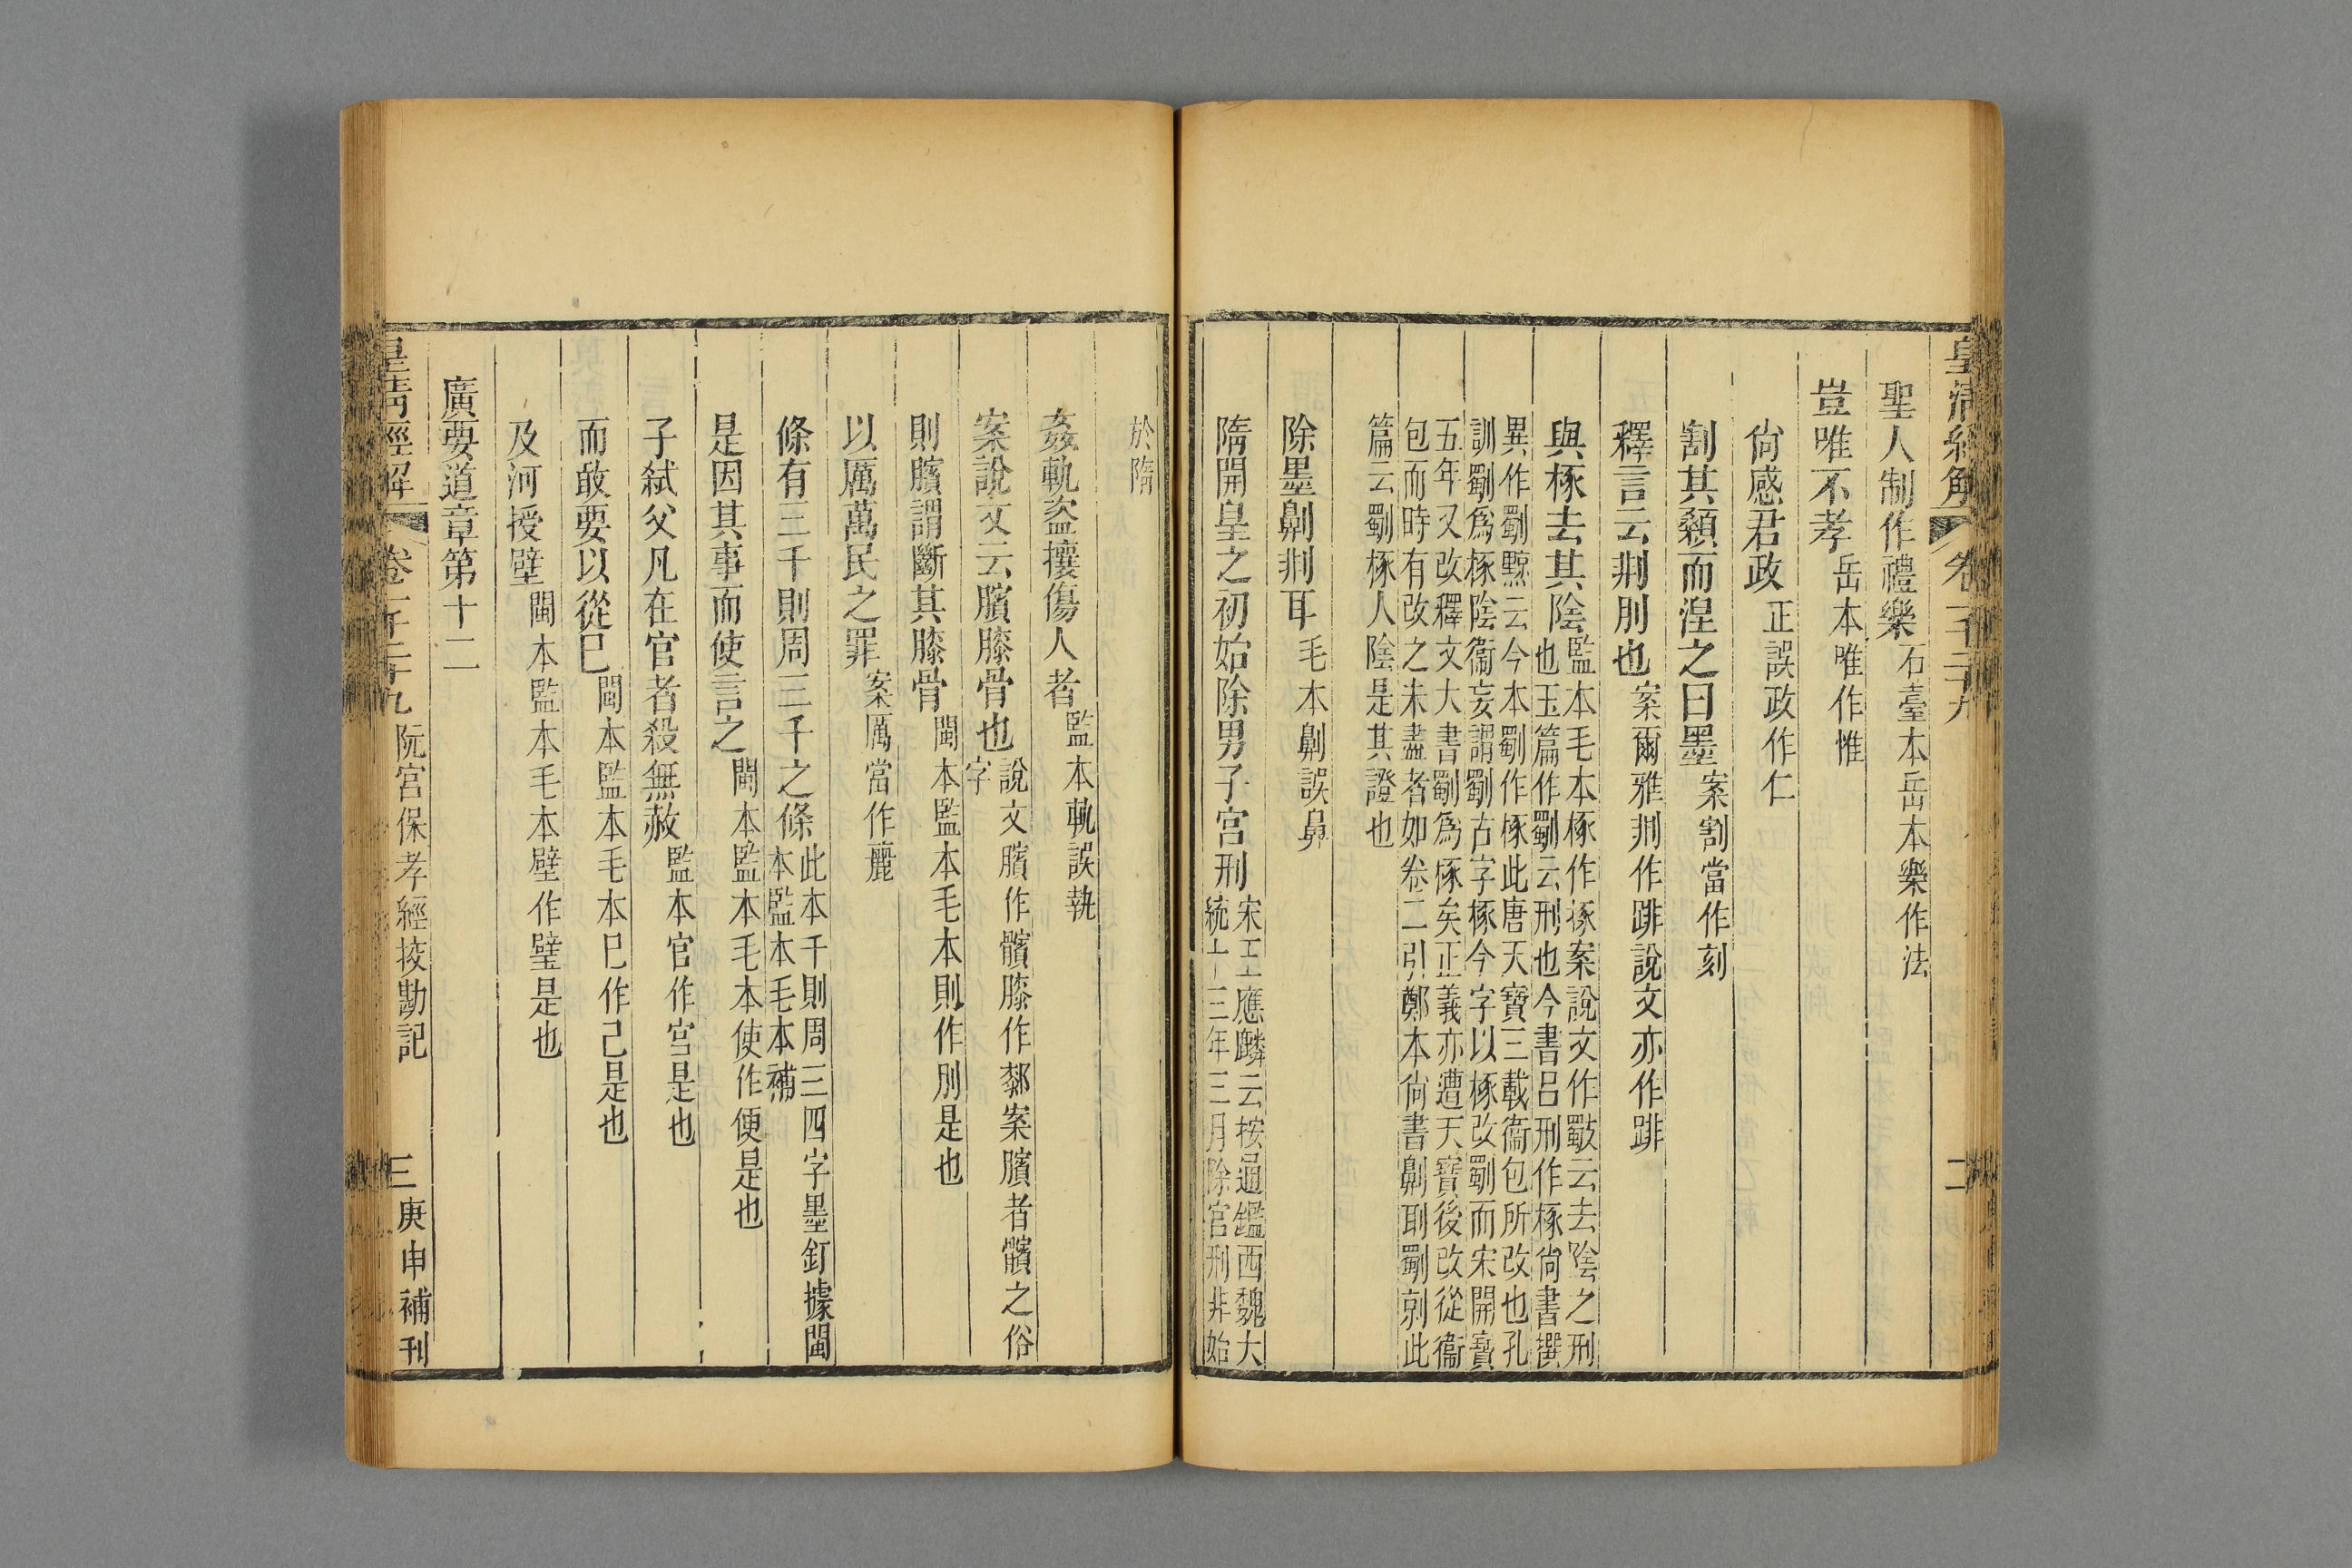 皇清經解 卷一千三十九 二
聖人制作禮樂石臺本岳本樂作法
豈唯不孝岳本唯作惟
尙感君政正誤政作仁
割其顙而涅之曰墨案割當作刻
釋言云剕刖也案爾雅剕作跸說文亦作跸
與椓去其陰監本毛本椓作㧻案說文作斀云去陰之刑
也玉篇作劅云刑也今書呂刑作椓尙書撰
異作劅黥云今本劅作椓此唐天寶三載衞包所改也孔
訓劅爲椓陰衞妄謂劅古字椓今字以椓改劅而宋開寶
五年又改釋文大書劅爲椓矣正義亦遭天寶後改從衞
包而時有改之未盡者如卷二引鄭本尙書劓刵劅剠此
篇云劅椓人陰是其證也
除墨劓剕耳毛本劓誤鼻
隋開皇之初始除男子宮刑宋王應麟云按通鑑西魏大
統十三年三月除宮刑非始
於隋
姦軌盜攘傷人者監本軌誤執
案說文云臏膝骨也說文臏作髕膝作厀案臏者髕之俗
字
則臏謂斷其膝骨閩本監本毛本則作刖是也
以厲萬民之罪案厲當作麗
條有三千則周三千之條此本千則周三四字墨釘據閩
本監本毛本補
是因其事而使言之閩本監本毛本使作便是也
子弑父凡在官者殺無赦監本官作宮是也
而敢要以從巳閩本監本毛本巳作己是也
及河授壁閩本監本毛本壁作璧是也
廣要道章第十二
皇清經解 卷一千三十九 阮宮保孝經挍勘記 三 庚申補刊